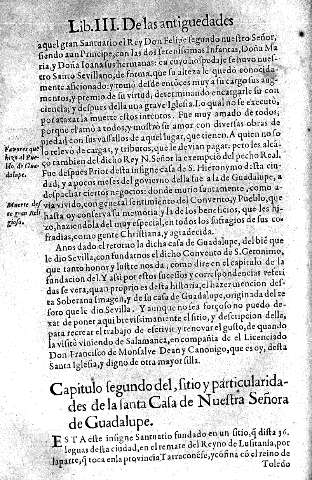 Lib. III. De las antiguedades
aquel gran Santuario el Rey Don Felipe segundo nuestro Señor,
siendo aun Principe, con las dos serenissimas Infantas, Doña Ma
ria, y Doña Ioana sus hermanas: a cuyo hospedaje se huvo nues-
tro Santo Sevillano, de forma, que su alteza le quedò conocida
mente aficionado: y tomò desde entonces muy a cargo sus aug-
mentos, y premio de su virtud, determinando encargarle su con
ciencia, y despues della una grave Iglesia. Lo qual no se executò,
por atajar la muerte estos intentos. Fue muy amado de todos,
porque el amò a todos, y mostrò su amor con diversas obras de
piedad con sus vassallos de aquel lugar, que tienen. A quien no so
lo relevò de cargas, y tributos, que le devian pagar: pero les alcã-
çò tambien del dicho Rey N. Señor la exempciõ del pecho Real.
Fue despues Prior desta insigne casa de S. Hieronymo desta ciu-
dad, y a pocos meses del govierno della fue a la de Guadalupe, a
despachar ciertos negocios: donde murio santamente, como a-
via vivido, con general sentimiento del Convento, y Pueblo, que
hasta oy conserva su memoria, y la de los beneficios, que les hi-
zo, haziendola del muy especial, en todos los sufragios de sus co-
fradias, como gente Christiana, y agradecida.
Favores que
hizo al Pue
blo de Gua
dalupe.
Muerte des
te gran Reli
gioso.
Anos dado el retorno la dicha casa de Guadalupe, del biē que
le dio Sevilla, con fundarnos el dicho Convento de S. Geronimo,
que tanto honor y lustre nos da, como dire en el capitulo de la
fundacion del. Y assi por estos sucessos y correspondencias referi
das se vera, quan proprio es desta historia, el hazer mencion des-
ta Soberana Imagen, y de su casa de Guadalupe, originada del te
soro que le dio Sevilla. Y aunque no sea forçoso no puedo de-
xar de poner aqui brevissimamente el sitio, y descripcion della,
para recrear el trabajo de escrivir, y renovar el gusto, de quando
la visitè viniendo de Salamanca, en compañia de el Licenciado
Don Francisco de Monsalve Dean y Canonigo, que es oy, desta
Santa Iglesia, y digno de otra mayor silla.
Capitulo segundo del, sitio y particularida-
des de la santa Casa de Nuestra Señora
de Guadalupe.
ESTA este insigne Santuario fundado en un sitio, q̃ dista 36.
leguas desta ciudad, en el remate del Reyno de Lusitania, por
la parte, q̃ toca en la provincia Tarraconēse, y cõfina cõ el reino de
Toledo